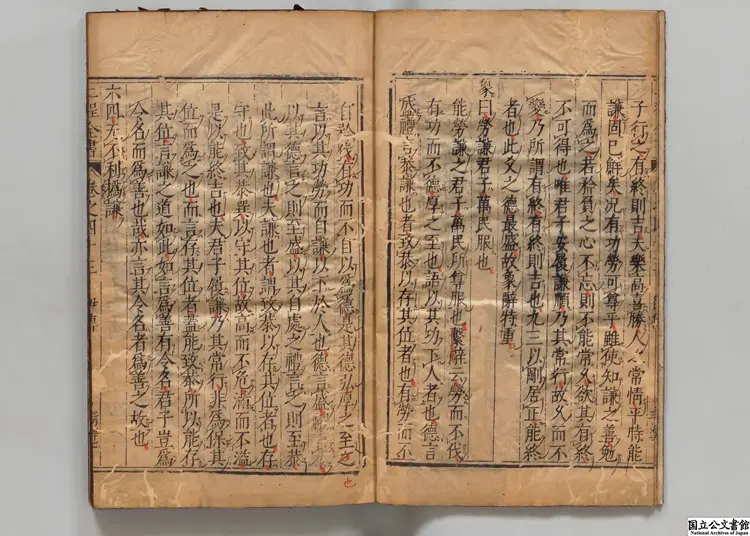 子行之有終則吉夫樂高喜勝人之常情平時能
謙固已鮮矣況有功勞可尊乎雖使知謙之善勉
而爲之若矜負之心不忘則不能常久欲其有終
不可得也唯君子安履謙順乃其常行故久而不
變乃所謂有終有終則吉也九三以剛居正能終
者也此爻之德最盛故象辭特重
象曰勞謙君子萬民服也
能勞謙之君子萬民所尊服也繫辭云勞而不伐
有功而不德厚之至也語以其功下人者也德言
盛禮言恭謙也者致恭以存其位者也有勞而不
自矜伐有功而不自以爲德是其德弘厚之至也
言以其功勞而自謙以下於人也德言盛禮言恭
以其德言之則至盛以其自處之禮言之則至恭
此所謂謙也夫謙也者謂致恭以存其位者也存
守也致其恭巽以守其位故高而不危滿而不溢
是以能終吉也夫君子履謙乃其常行非爲保其
位而爲之也而言存其位者蓋能致恭所以能存
其位言謙之道如此如言爲善有令名君子豈爲
令名而爲善也哉亦言其令名者爲善之故也
六四无不利撝謙
二程全書 卷之四十三
国立公文書館
National Archives of Japan